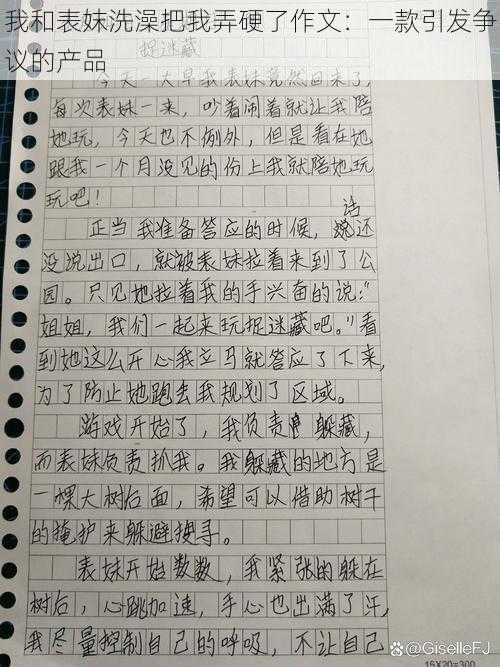 我和表妹洗澡把我弄硬了作文：一款引发争
议的产品
捉迷藏
今天一大早我表妹竟然回来了，
每次表妹一来，吵着闹着就让我陪
她玩，今天也不例外，但是看在她
跟我一个月没见的份上我就陪她玩
玩吧！
正当我准备答应的时候，话还
没说出口，就被表妹拉着来到了公
园。只见她拉着我的手兴奋的说：“
姐姐，我们一起来玩捉迷藏吧。”看
到她这么开心我立马就答应了下来，
为了防止她跑丢我规划了区域。
游戏开始了，我负责躲藏，
而表妹负责抓我。我躲藏的地方是
一棵大树后面，希望可以借助树干
的掩护来躲避搜寻。
表妹开始数数，我紧张的躲在
树后，心跳加速，手心也出满了汗，
我尽量控制自己的呼吸，不让自己
15X20=300
@GiselleFJ